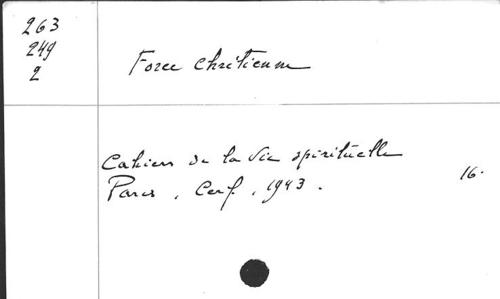 263
249
2
Force chrétienne
Cahiers de la Vie spirituelle
Paris, Cerf, 1943.
16.